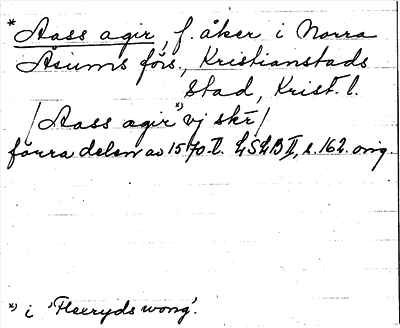 * Aass agir, f. åker i Norra
Åsums förs., Kristianstads
Stad, Krist. l.
/Aass agir *) vj skr/
förra delen av 1570-t. LSLB II, s. 162. orig.
*) i 'Fleeryds wong'.